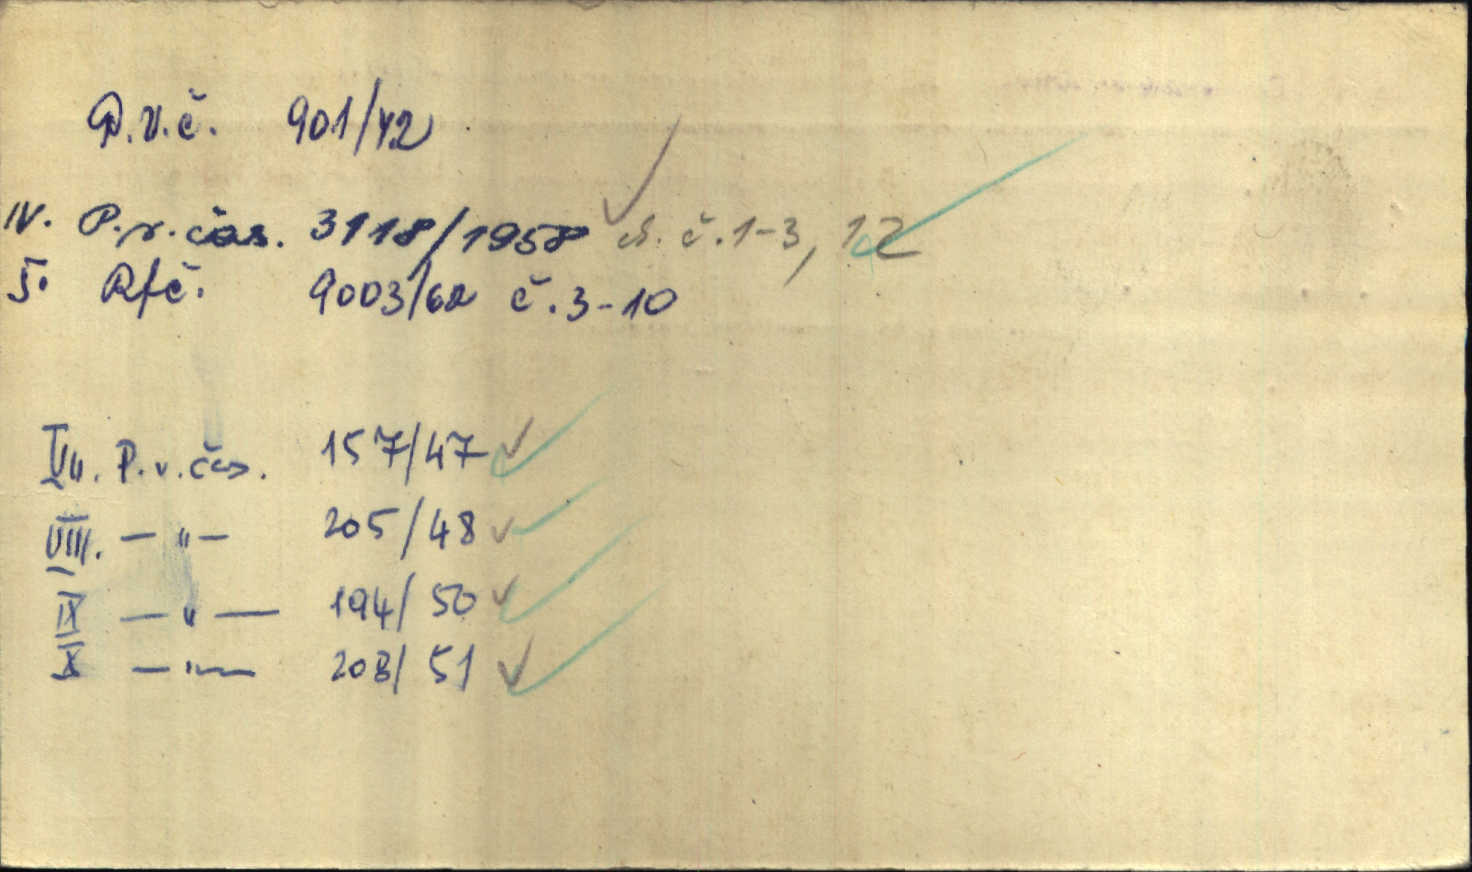 P.v.č. 901/42
IV. P.v.čas. 3118/1958 č.1-3, 12
5. Rfč. 9003/62 č.3-10
VII. P.v.čas. 157/47
VIII. — " — 205/48
IX — " — 194/50
X — " — 208/51